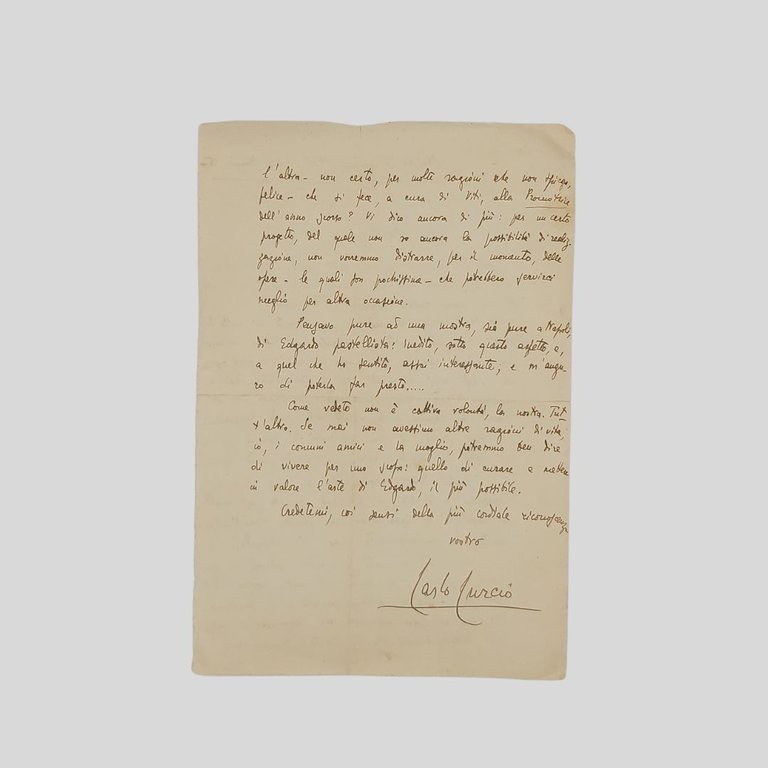 l'altra – non certo, per molte ragioni che non spiego,
felice – che si fece, a cura di Viti, alla Promotrice
dell'anno scorso? Vi dico ancora di più: per un certo
progetto, del quale non so ancora la possibilità di realiz-
zazione, non vorremmo distrarre, per il momento, delle
opere – le quali son pochissime – che potrebbero servirci
meglio per altra occasione.
Pensavo pure ad una mostra, sia pure a Napoli,
di Edgardo pastellista: inedito, sotto questo aspetto, e,
a quel che ho sentito, assai interessante; e m'augu-
ro di poterla far presto.....
Come vedete non è cattiva volontà, la nostra. Tut-
t'altro. Se mai non avessimo altre ragioni di vita,
io, i comuni amici e la moglie, potremmo ben dire
di vivere per uno scopo: quello di curare e mettere
in valore l'arte di Edgardo, il più possibile.
Credetemi, coi sensi della più cordiale riconoscenza
vostro
Carlo Curcio